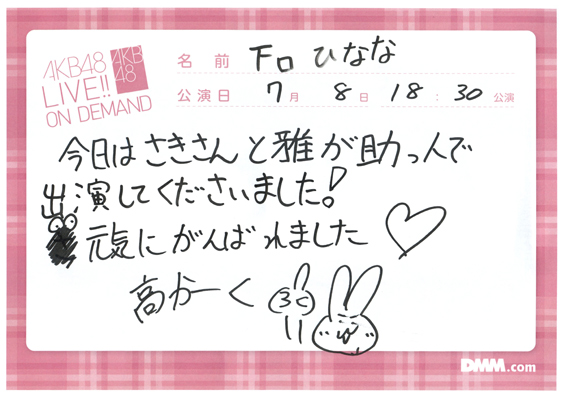 AKB48
LIVE!!
ON DEMAND
AKB
48
名前 下口ひなな
公演日 7月 8日 18:30公演
今日はさきさんと雅が助っ人で
出演してくださいました!
元気にがんばれました♡
高かーく
DMM.com